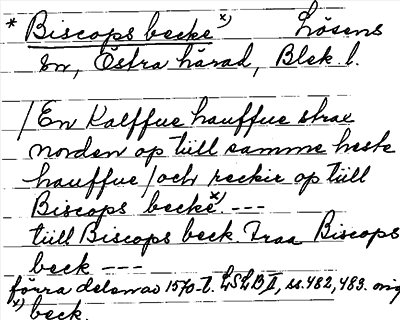 * Biscops becke x) Lösens
sn, Östra härad, Blek. l.
/En Kalffue hauffue strax
norden op till samme heste
hauffue/och reckie op tiill
Biscops becke x) ---
tiill Biscops beck. Fraa Biscops
beck ---
förra delen av 1570-t. LSLB II, ss. 482, 483. orig
x) beck.